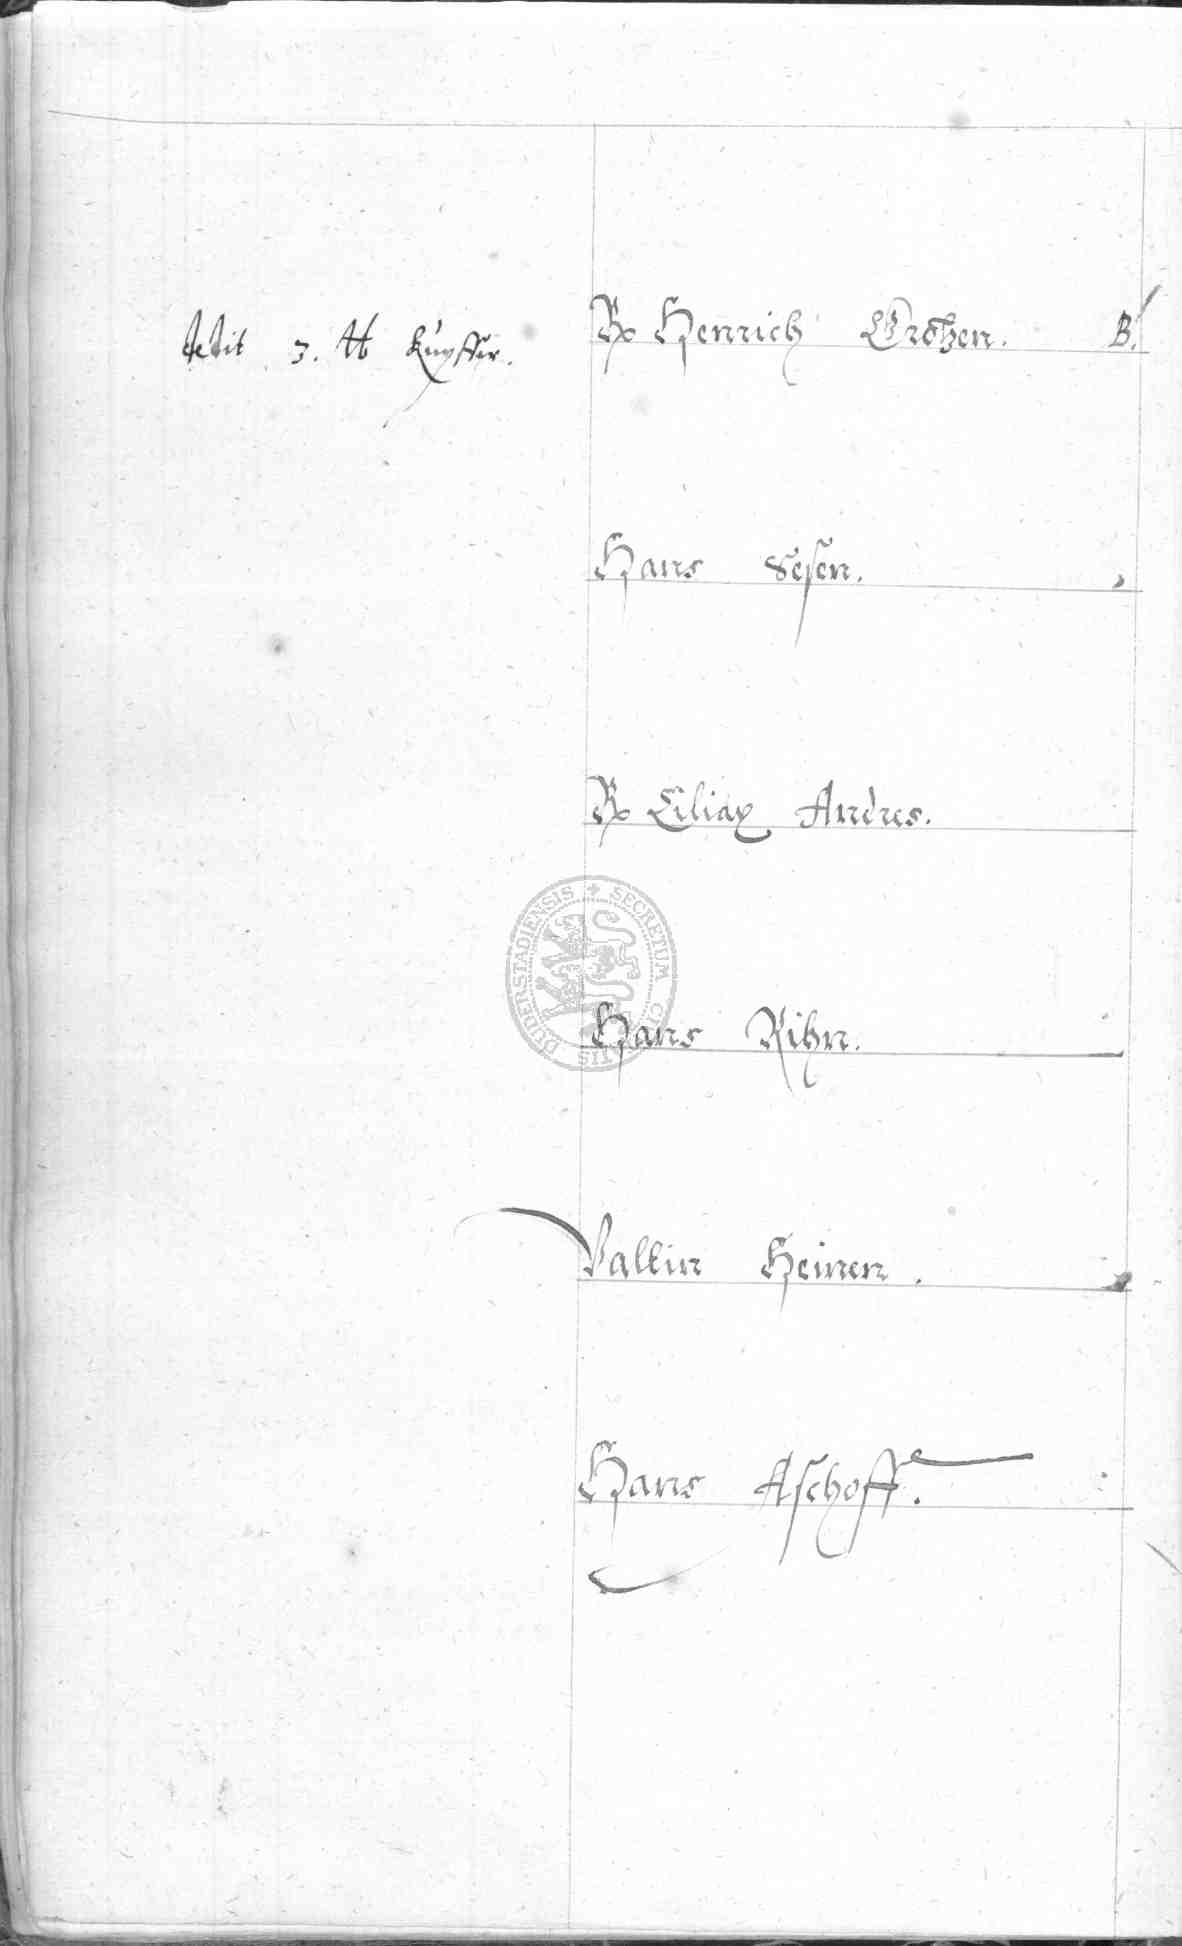 dedit 3. ℔ Kupffer.
Rx Henrich Grothen. B.
Hans Sesen.
Rx Ciliax Andres.
SECRETUM CIVITATIS DUDERSTADIENSIS
Hans Kihn.
Valtin Heinen.
Hans Aschoff.